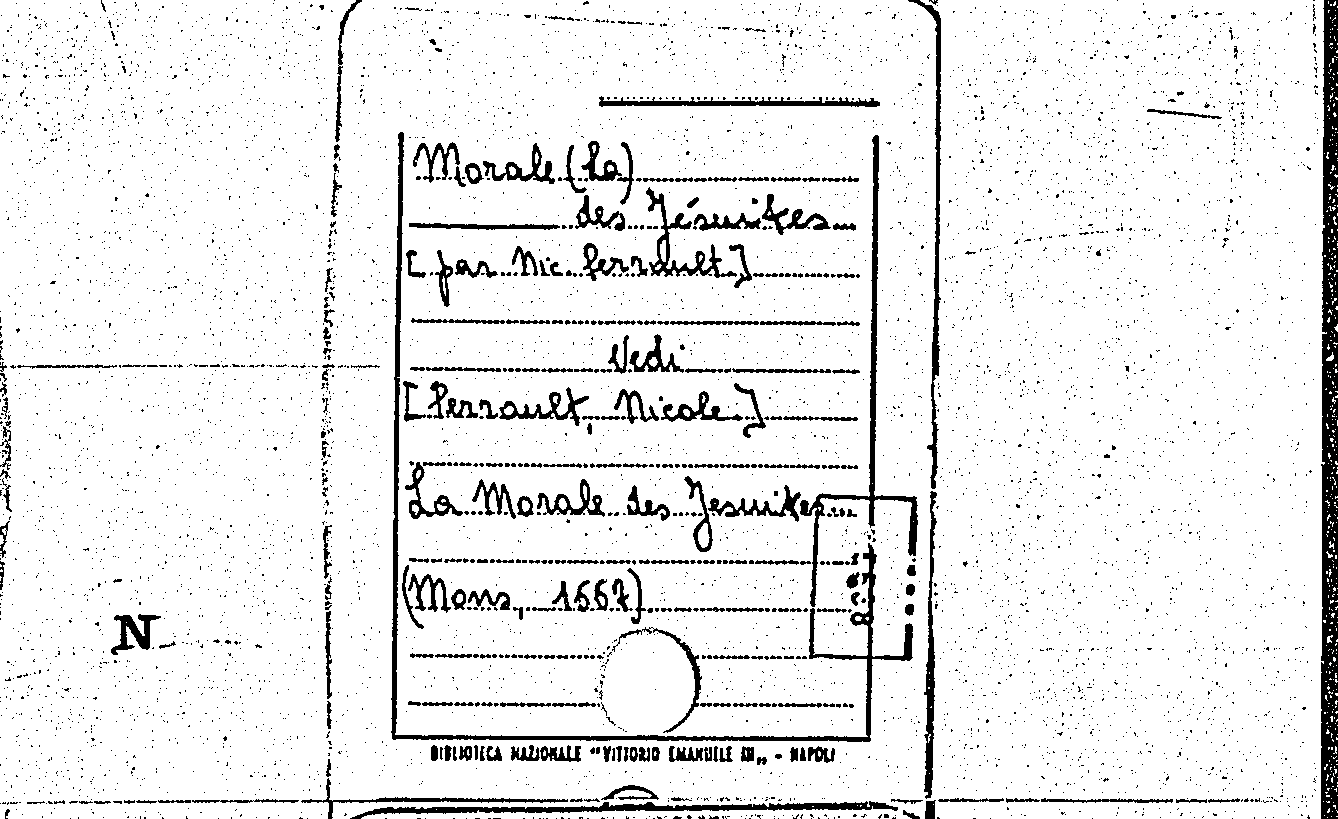 Morale (La)
des Jésuites...
[par Nic. Perrault]
Vedi
[Perrault, Nicole]
La Morale des Jesuites...
(Mons, 1667).
N
BIBLIOTECA NAZIONALE "VITTORIO EMANUELE III„ - NAPOLI